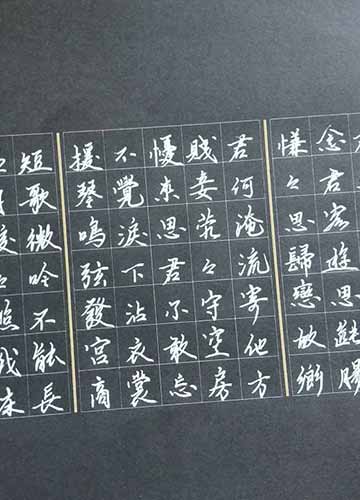 念君客遊思斷腸
慊々思歸戀故鄉
君何淹流寄他方
賤妾茕々守空房
懮來思君不敢忘
不覺淚下沾衣裳
援琴鳴弦發宮商
短歌微吟不能長
月皎々照我床